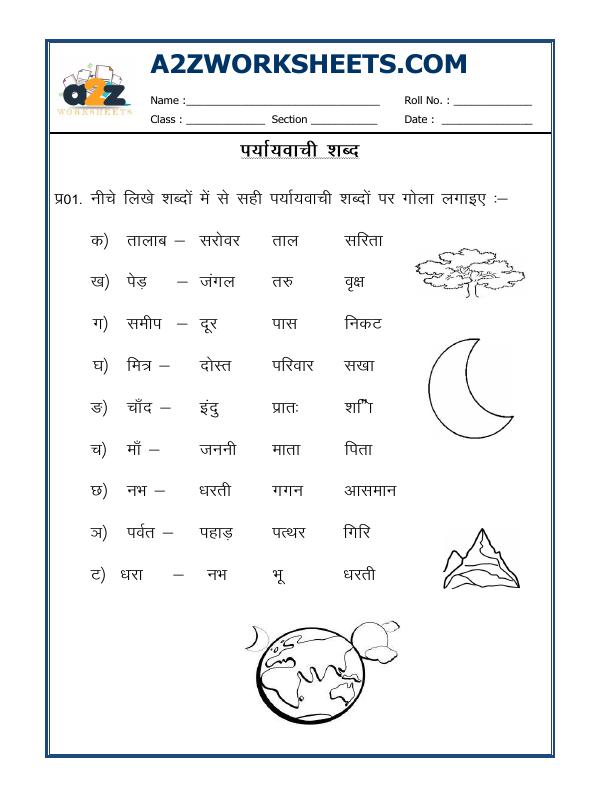 A2ZWORKSHEETS.COM
a2z
WORKSHEETS
Name :__________________________ Roll No. : ____________
Class : ____________ Section __________ Date : ______________
पर्यायवाची शब्द
प्र01. नीचे लिखे शब्दों में से सही पर्यायवाची शब्दों पर गोला लगाइए :–
क) तालाब – सरोवर ताल सरिता
ख) पेड़ – जंगल तरु वृक्ष
ग) समीप – दूर पास निकट
घ) मित्र – दोस्त परिवार सखा
ङ) चाँद – इंदु प्रातः
च) माँ – जननी माता पिता
छ) नभ – धरती गगन आसमान
ञ) पर्वत – पहाड़ पत्थर गिरि
ट) धरा – नभ भू धरती